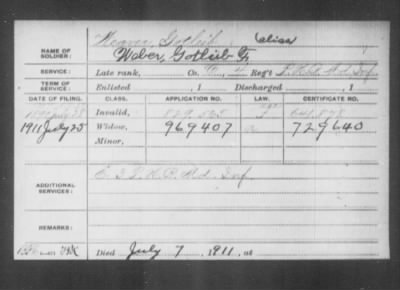 Weaver, Gotleib alias
NAME OF SOLDIER: Weber, Gotlieb F,
SERVICE: Late rank, Co. Reg't P.H.B. Md. Inf.
TERM OF SERVICE: Enlisted , 1 Discharged , 1
DATE OF FILING. CLASS. APPLICATION NO. LAW. CERTIFICATE NO.
Invalid,
1911 July 25 Widow, 969407 729640
Minor,
ADDITIONAL SERVICES: P.H.B. Md. Inf.
REMARKS:
Died July 7 , 1911, at